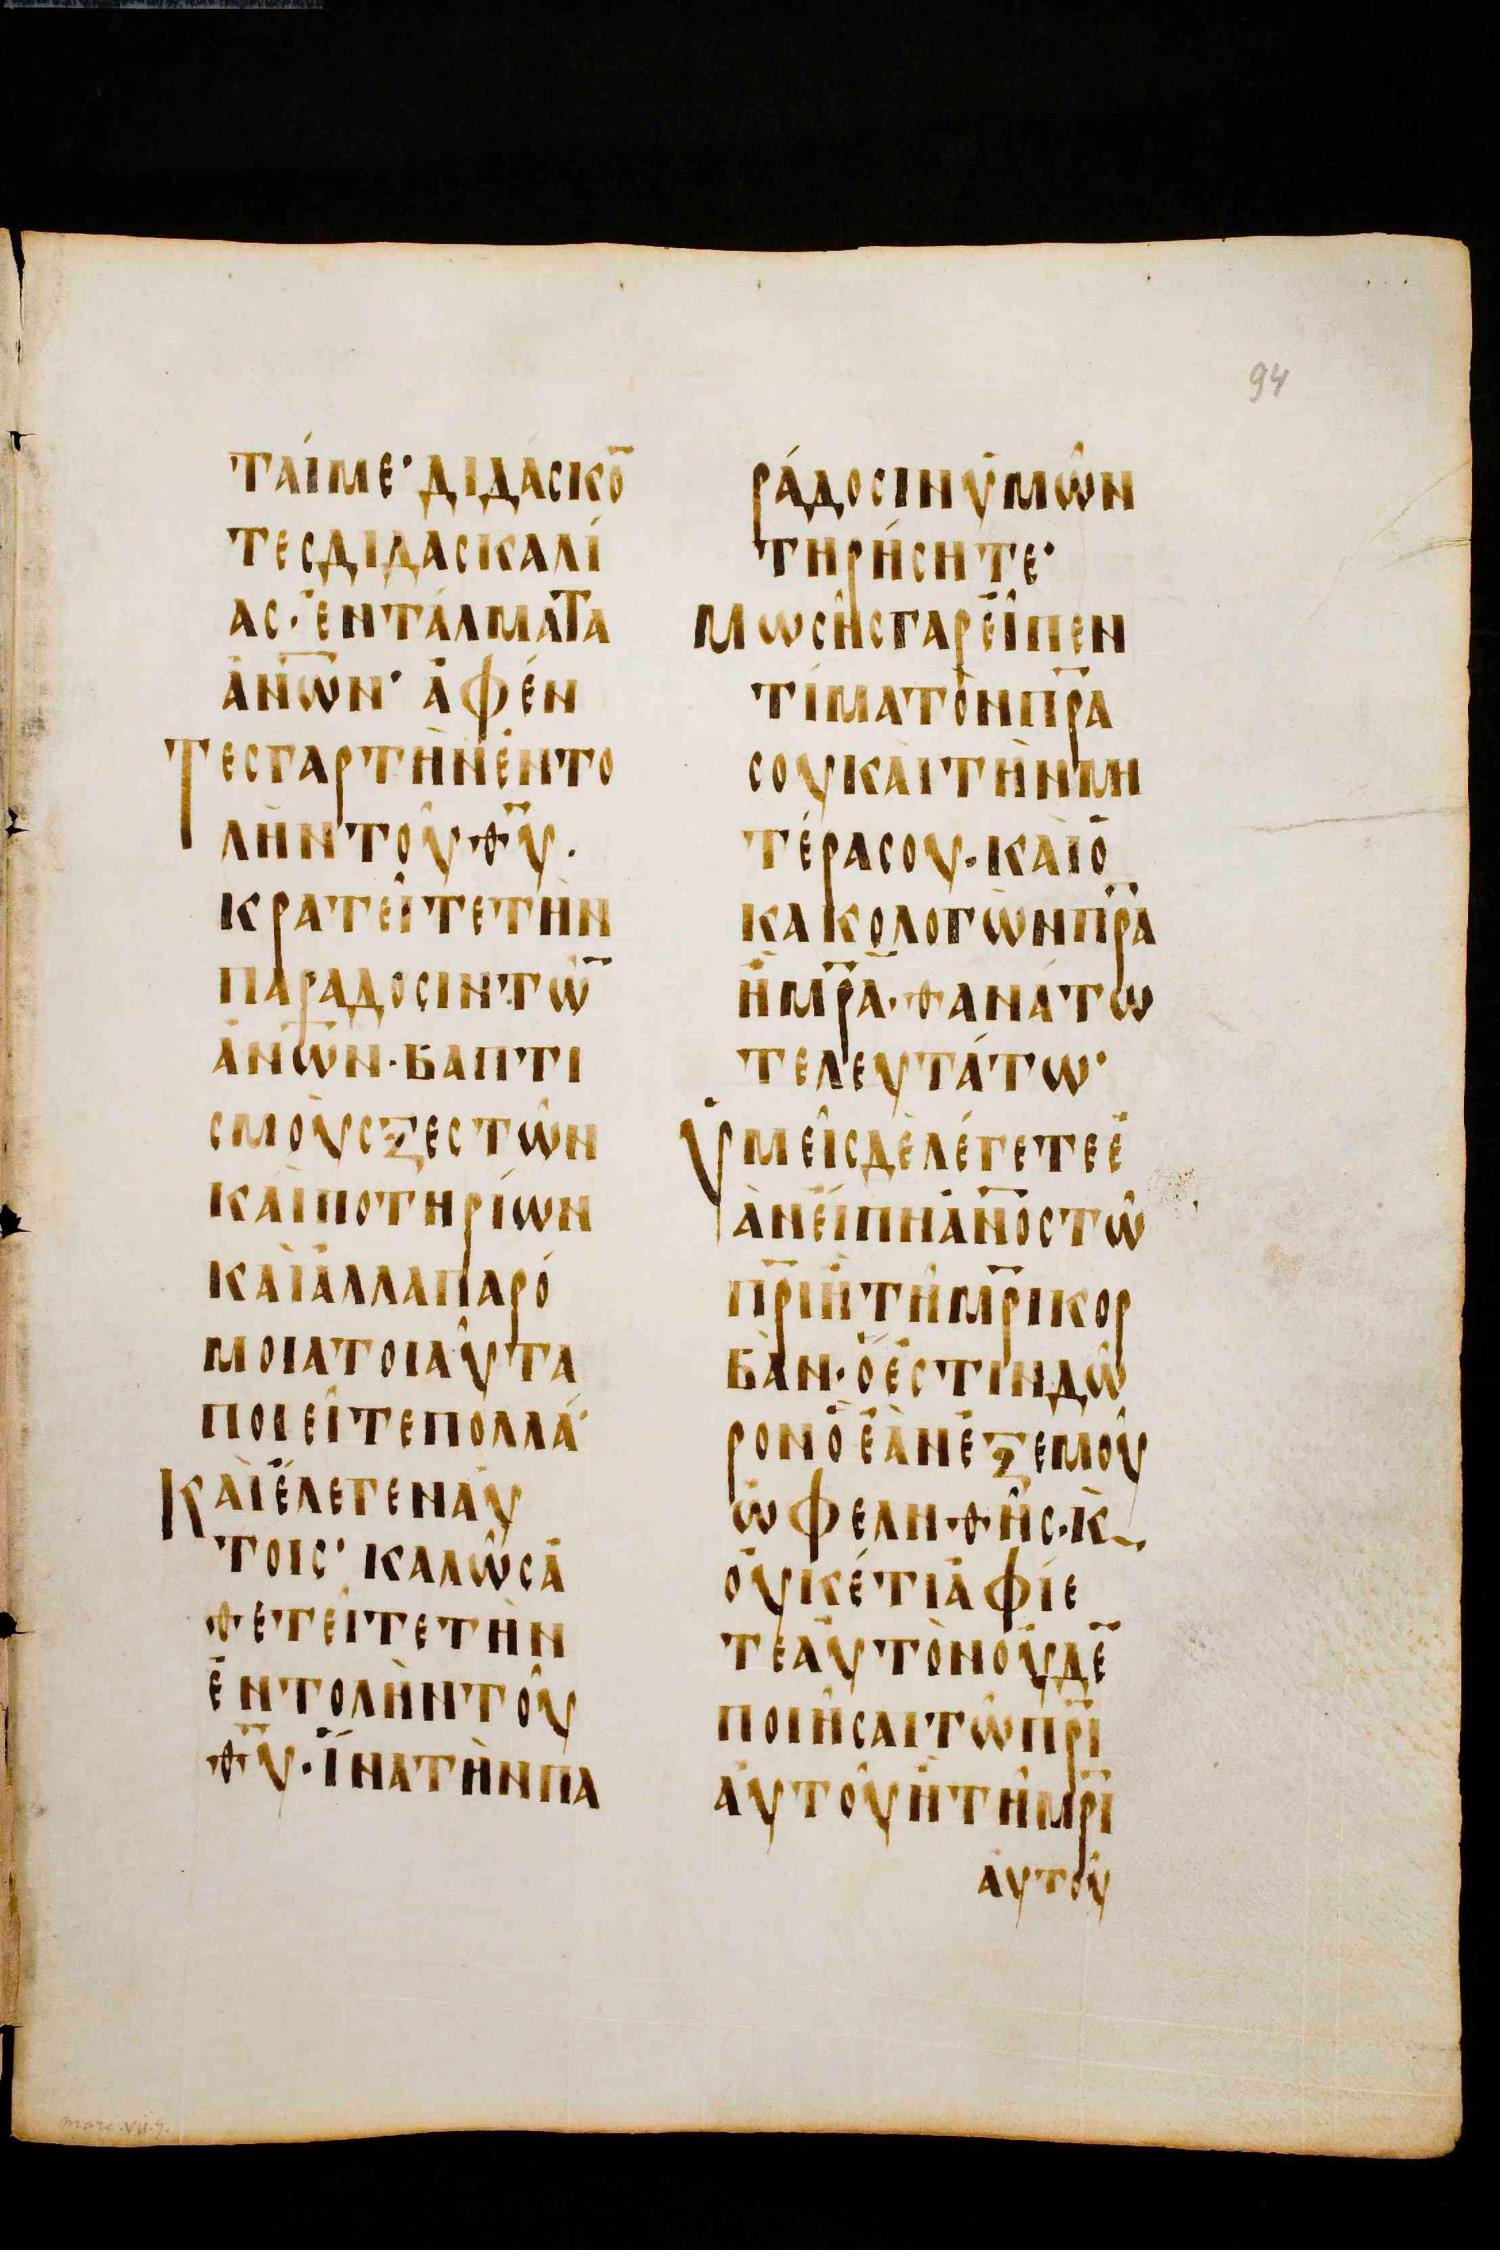 94
ταί με· διδάσκο̄
τες διδασκαλί
ας· ἐντάλματα
ἀν̅ω̅ν· ἀφέν
Τες γὰρ τὴν ἐντο
λὴν τοῦ θ̅υ̅·
κρατεῖτε τὴν
παράδοσιν τῶ̅
ἀν̅ω̅ν· βαπτι
σμοὺς ξεστῶν
καὶ ποτηρίων
καὶ ἄλλα παρό
μοια τοιαῦτα
ποιεῖτε πολλά·
Καὶ ἔλεγεν αὐ
τοῖς· καλῶς ἀ
θετεῖτε τὴν
ἐντολὴν τοῦ
θ̅υ̅· ἵνα τὴν πα
ράδοσιν ὑμῶν
τηρήσητε·
Μωσῆς γὰρ εἶπεν
τίμα τὸν π̅ρ̅α
σου καὶ τὴν μη
τέρα σου· καὶ ὁ
κακολογῶν π̅ρ̅α
ἢ μ̅ρ̅α· θανάτω
τελευτάτω·
Ὑμεῖς δὲ λέγετε ἐ
ὰν εἴπη ἄν̅ο̅ς τῶ
π̅ρ̅ι ἢ τῆ μ̅ρ̅ι κορ
βὰν· ὅ ἐστιν δῶ
ρον ὃ ἐὰν ἐξ ἐμοῦ
ὠφεληθῆς· κ̀
οὐκέτι ἀφίε
τε αὐτὸν οὐδὲ̅
ποιῆσαι τῶ π̅ρ̅ι
αὐτοῦ ἢ τῆ μ̅ρ̅ι
αὐτοῦ
marc. VII. 7.